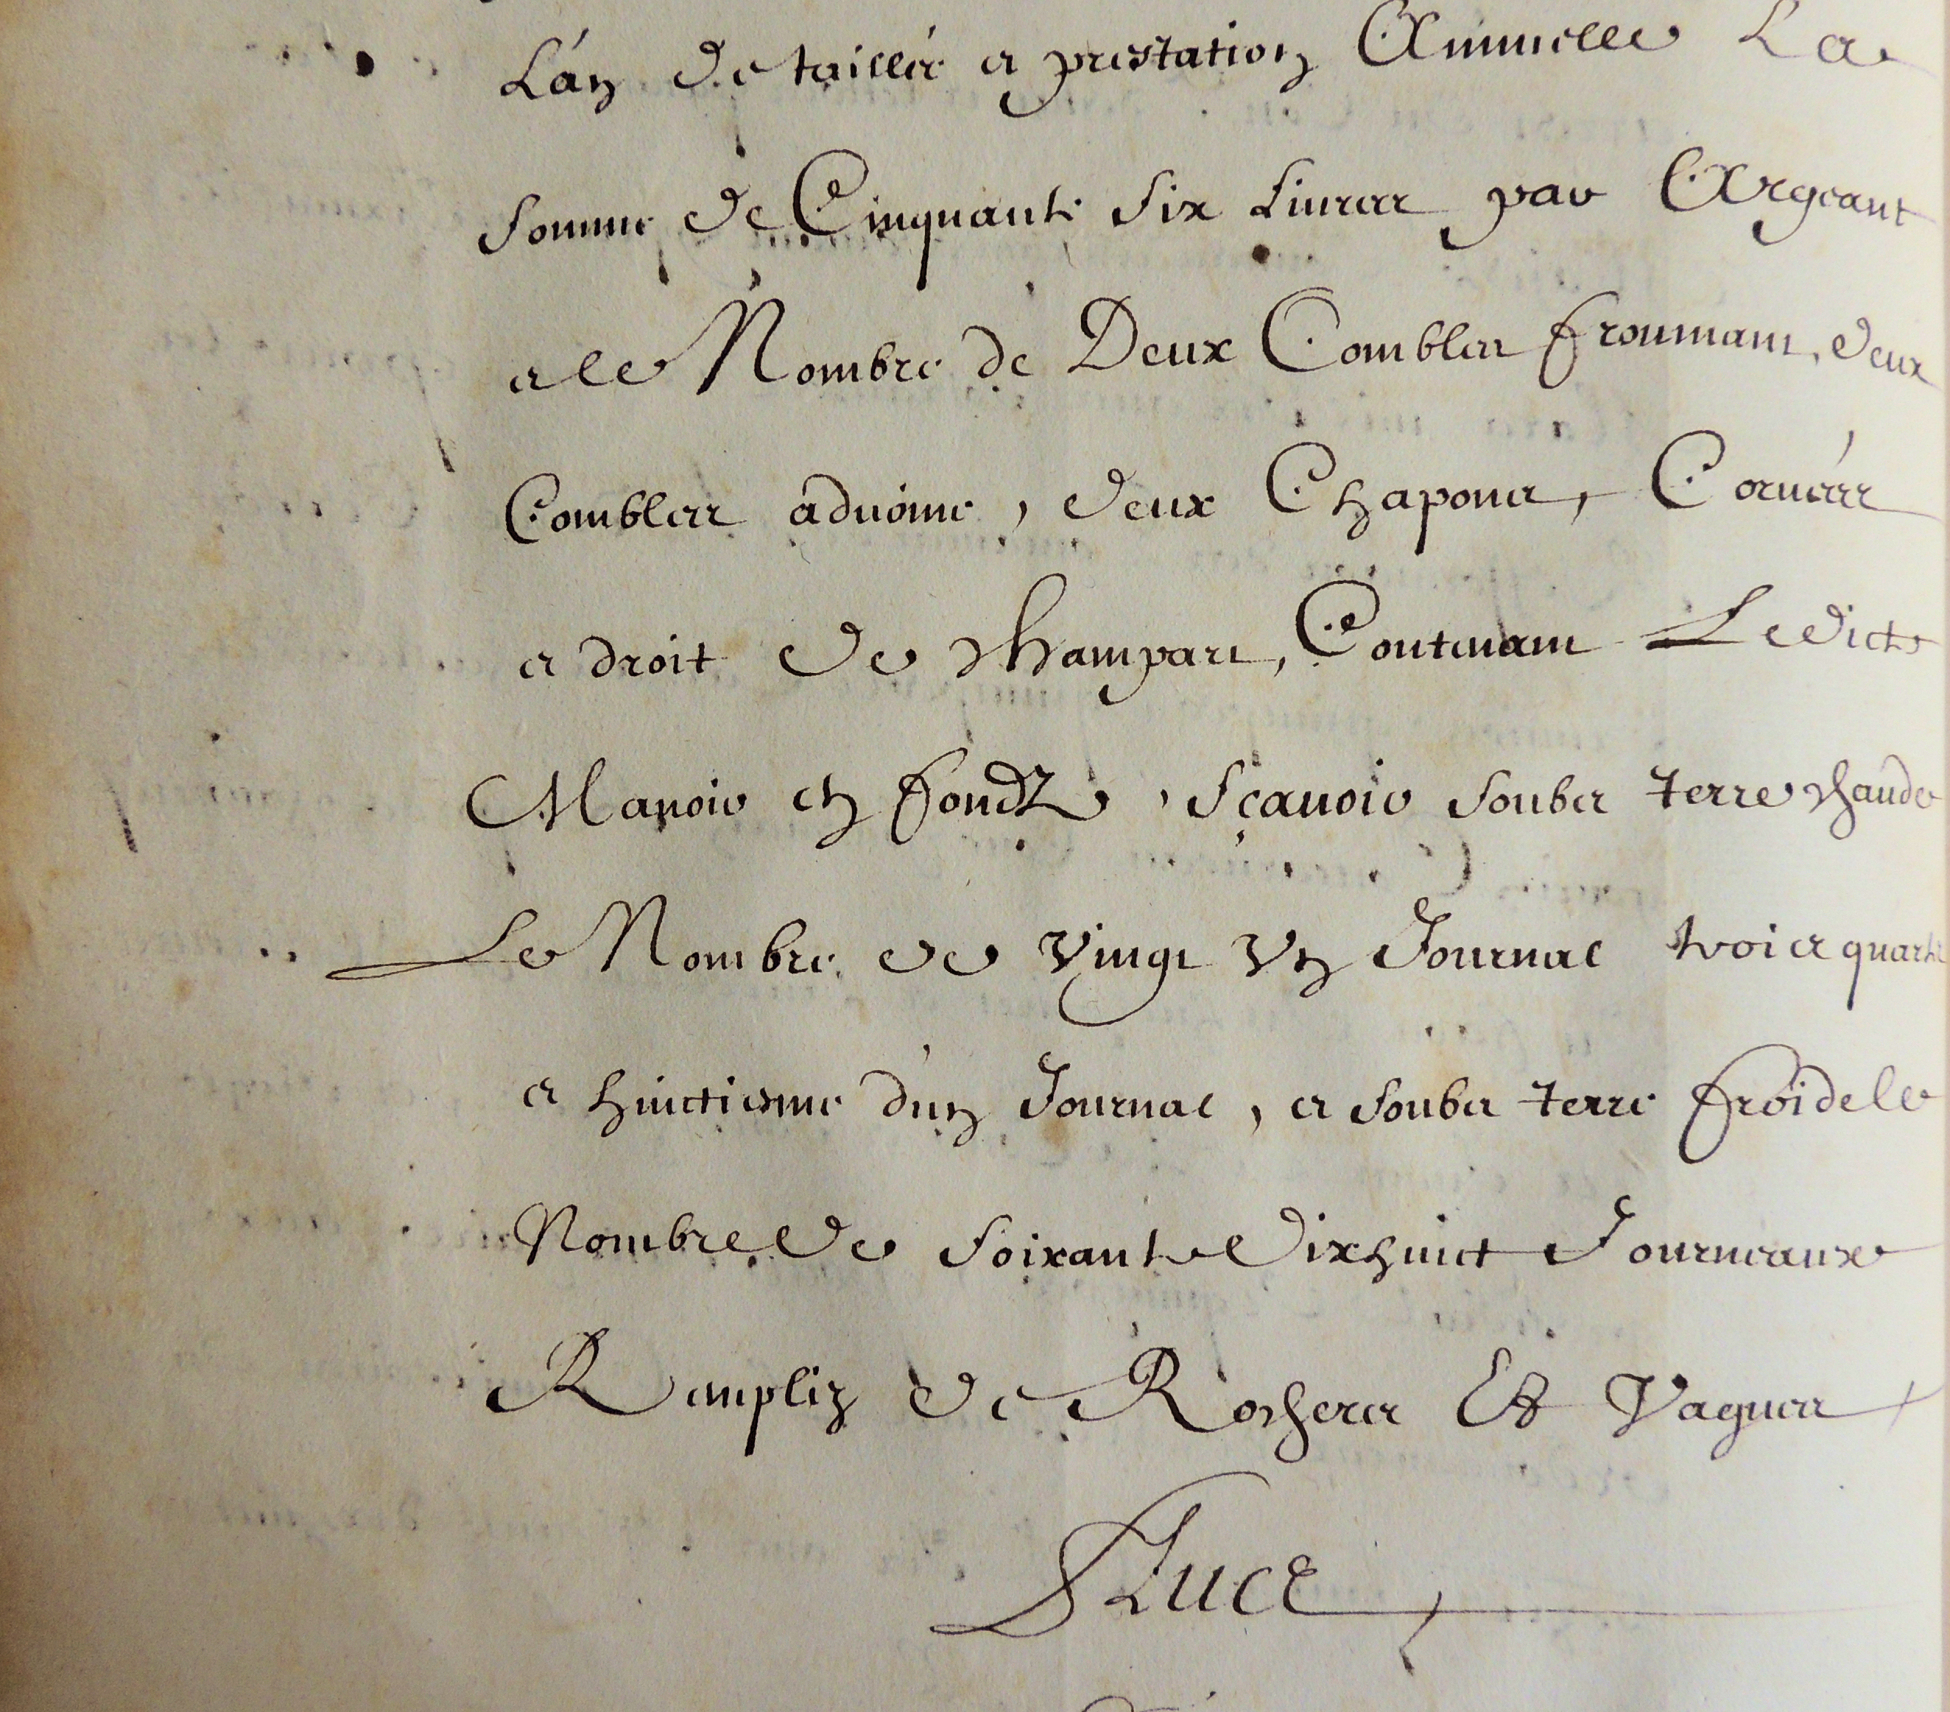 L'an de taillée et prestation Annuelle La
Somme de Cinquante Six Livres par Argeant
et le Nombre de Deux Combles froumant, deux
Combles advoine, deux Chapons, Corvées
et droit de champart, Contenant Ledict
Manoir en fondz, Sçavoir Soubs terre chaude
Le Nombre de Vingt Un Journal trois quarts
et huictiesme d'un Journal, et Soubs terre froide le
Nombre de Soixante Dixhuict Journeaux
Remplis de Rochers Et Vagues
Luce